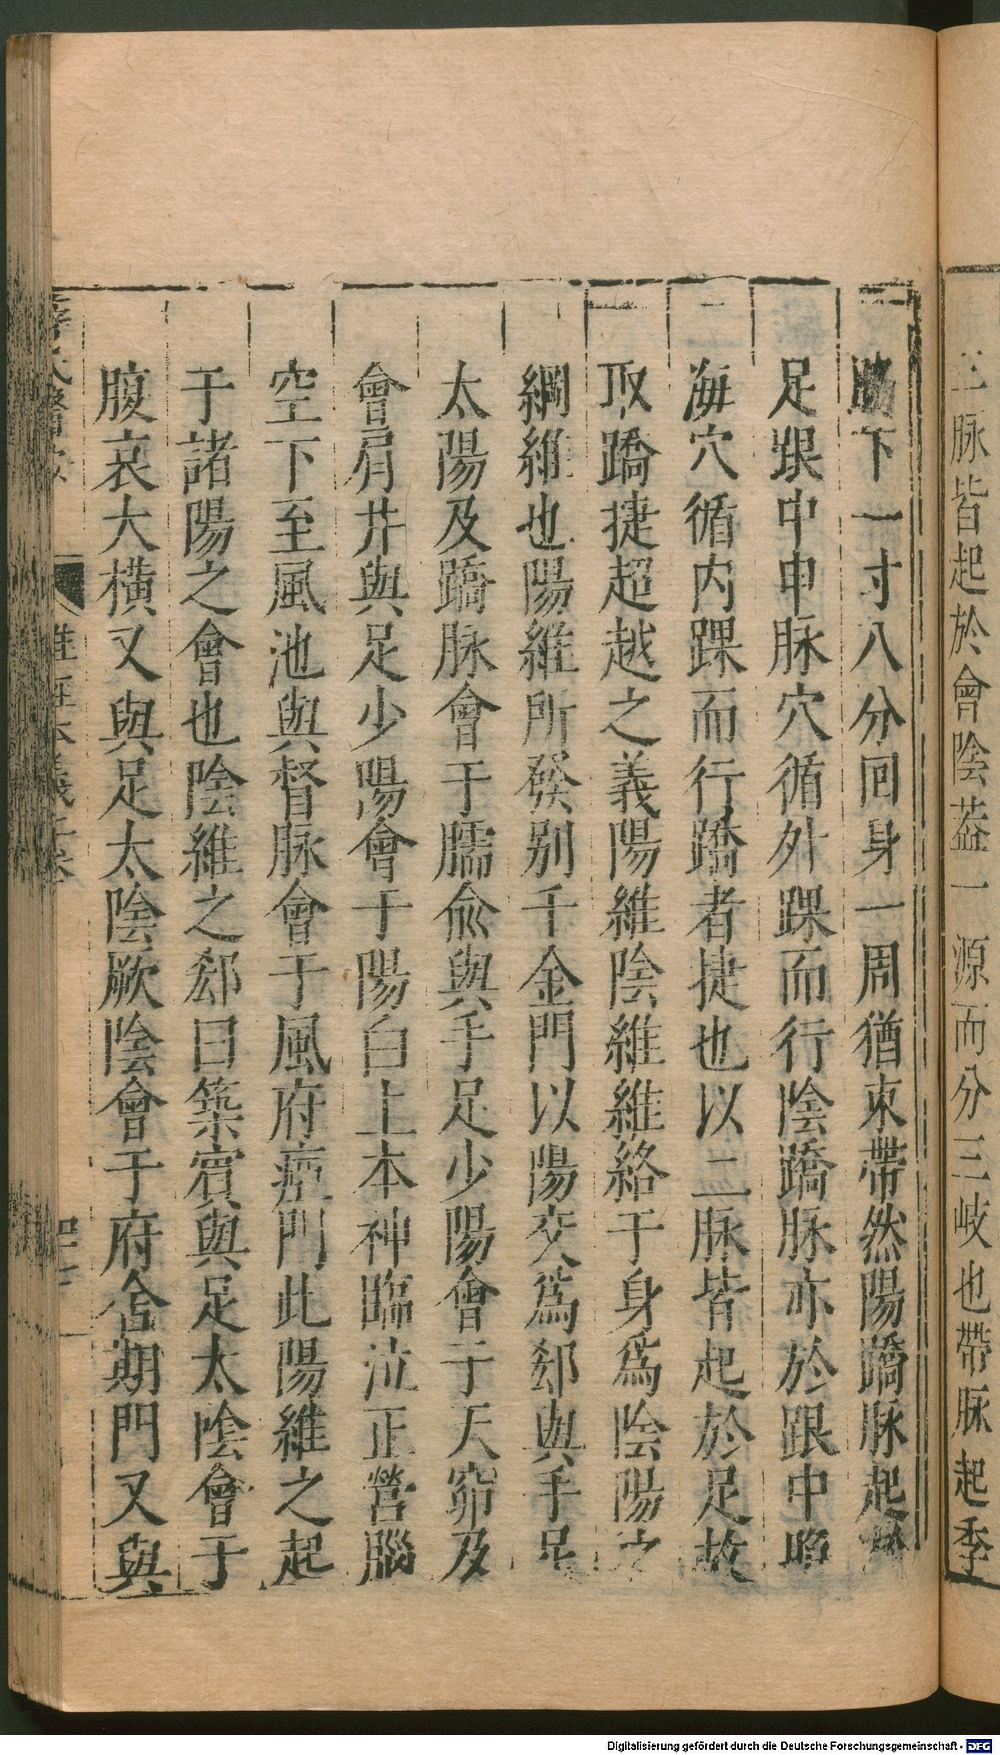 三脉皆起於會陰葢一源而分三岐也帶脉起季
脇下一寸八分回身一周猶束帶然陽蹻脉起於
足跟中申脉穴循外踝而行陰蹻脉亦於跟中照
海穴循内踝而行蹻者捷也以二脉皆起於足故
取蹻捷超越之義陽維陰維維絡于身爲陰陽之
綱維也陽維所發别于金門以陽交爲郄與手足
太陽及蹻脉會于臑兪與手足少陽會于天窌及
會肩井與足少陽會于陽白上本神臨泣正營腦
空下至風池與督脉會于風府瘂門此陽維之起
于諸陽之會也陰維之郄曰築賓與足太陰會于
腹哀大橫又與足太陰厥陰會于府舍期門又與
Digitalisierung gefördert durch die Deutsche Forschungsgemeinschaft - DFG